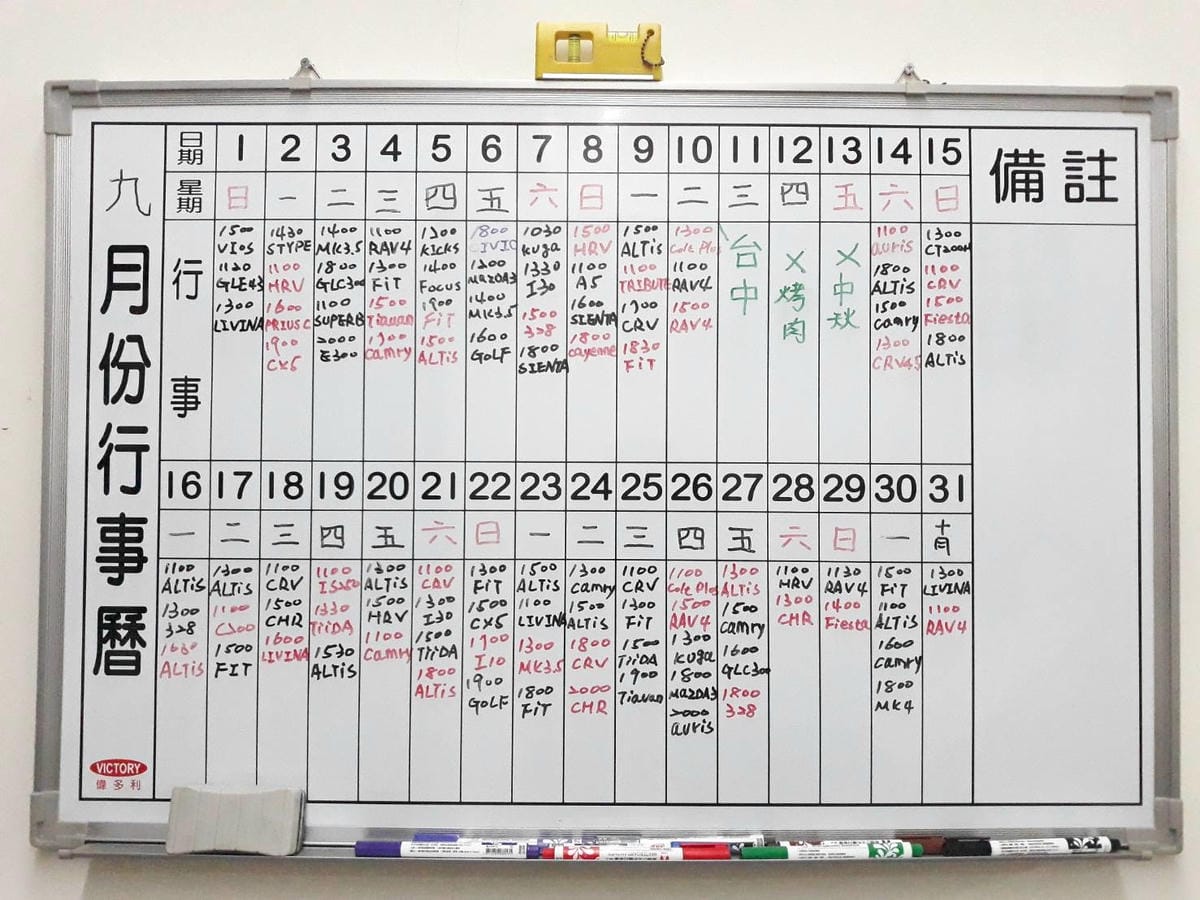 九月份行事曆
日期 1 2 3 4 5 6 7 8 9 10 11 12 13 14 15
備註
星期 日 一 二 三 四 五 六 日 一 二 三 四 五 六 日
行事
1500
VIOS
1120
GLE43
1300
LIVINA
1430
STYPE
1100
HRV
1600
PRIUSC
1900
CX5
1400
MK3.5
1800
GLC300
1100
SUPERB
2000
E300
1100
RAV4
1300
FiT
1500
Tiguan
1900
Camry
1300
KICKS
1400
Focus
1900
FiT
1500
ALTiS
1800
CIVIC
1200
MAZDA3
1400
MK3.5
1600
GOLF
1030
Kuga
1330
I30
1500
328
1800
SIENTA
1500
HRV
1100
A5
1600
SIENTA
1800
cayenne
1500
ALTiS
1100
TRIBUTE
1900
CRV
1830
FiT
1300
Colt Plus
1100
RAV4
1500
RAV4
台中
X烤肉
X中秋
1100
auris
1800
ALTiS
1500
Camry
1300
CRV4.5
1300
CT200H
1100
CRV
1500
Fiesta
1800
ALTiS
16 17 18 19 20 21 22 23 24 25 26 27 28 29 30 31
一 二 三 四 五 六 日 一 二 三 四 五 六 日 一 十月
1100
ALTiS
1300
328
1630
ALTiS
1300
ALTiS
1100
C300
1500
FIT
1100
CRV
1500
CHR
1600
LIVINA
1100
IS250
1330
TiiDA
1530
ALTiS
1300
ALTiS
1500
HRV
1100
Camry
1100
CRV
1300
I30
1500
TiiDA
1800
ALTiS
1300
FiT
1500
CX5
1700
I10
1900
GOLF
1500
ALTiS
1100
LIVINA
1300
MK3.5
1800
FiT
1300
Camry
1500
ALTiS
1800
CRV
2000
CHR
1100
CRV
1300
FiT
1500
TiiDA
1900
Tiguan
1100
Colt Plus
1500
RAV4
1300
Kuga
1800
MAZDA3
2000
auris
1300
ALTiS
1500
Camry
1600
GLC300
1800
328
1100
HRV
1300
CHR
1130
RAV4
1400
Fiesta
1500
FiT
1100
ALTiS
1600
Camry
1800
MK4
1300
LIVINA
1100
RAV4
VICTORY
偉多利